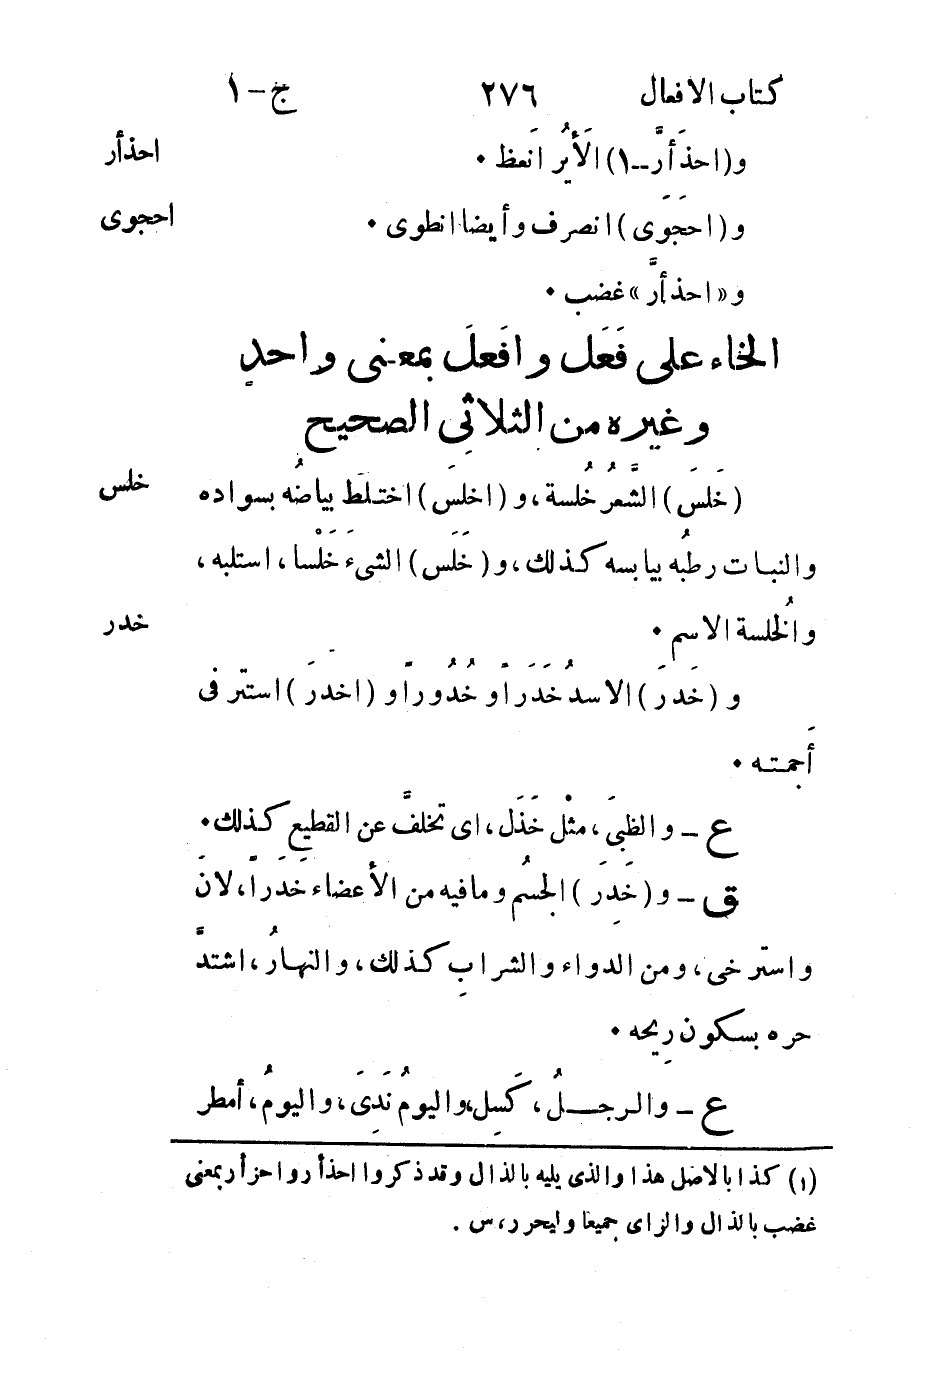 كتاب الافعال ٢٧٦ ج-١
و(احذَأَرَّ-١) الأَيرُ انَعظ • احذأر
و(احَجَوَى) انصرف وأيضا انطوى • احجوى
و«احذأرَّ» غضب •
الخاء على فَعَل وافَعلَ بمعنى واحدٍ
وغيرِه من الثلاثى الصحيح
(خَلَسَ) الشَّعرُ خُلسة، و(اخلسَ) اختلَطَ بياضُه بسواده خلس
والنبات رطبُه بيابسه كذلك، و(خَلَسَ) الشىءَ خَلْسا، استلبه،
والُخلسة الاسم • خدر
و(خَدرَ) الاسدُ خَدَراً وخُدُوراً و(اخدَرَ) استتر فى
أَجمته •
ع - والظبىَ، مثْل خَذَل، اى تخلفَّ عن القطيع كذلك •
ق - و(خَدِرَ) الجسُم ومافيه من الأعضاء خَدَراً، لانَ
واسترخى، ومن الدواء والشرابِ كذلك، والنهارُ، اشتدَّ
حره بسكون رِيحه •
ع - والرجــلُ، كَسِل، واليومُ نَدِىَ، واليومُ، أمطر
(١) كذا بالاصل هذا والذى يليه بالذال وقد ذكروا احذأر واحزأر بمعنى
غضب بالذال والزاى جميعا وليحرر، س .